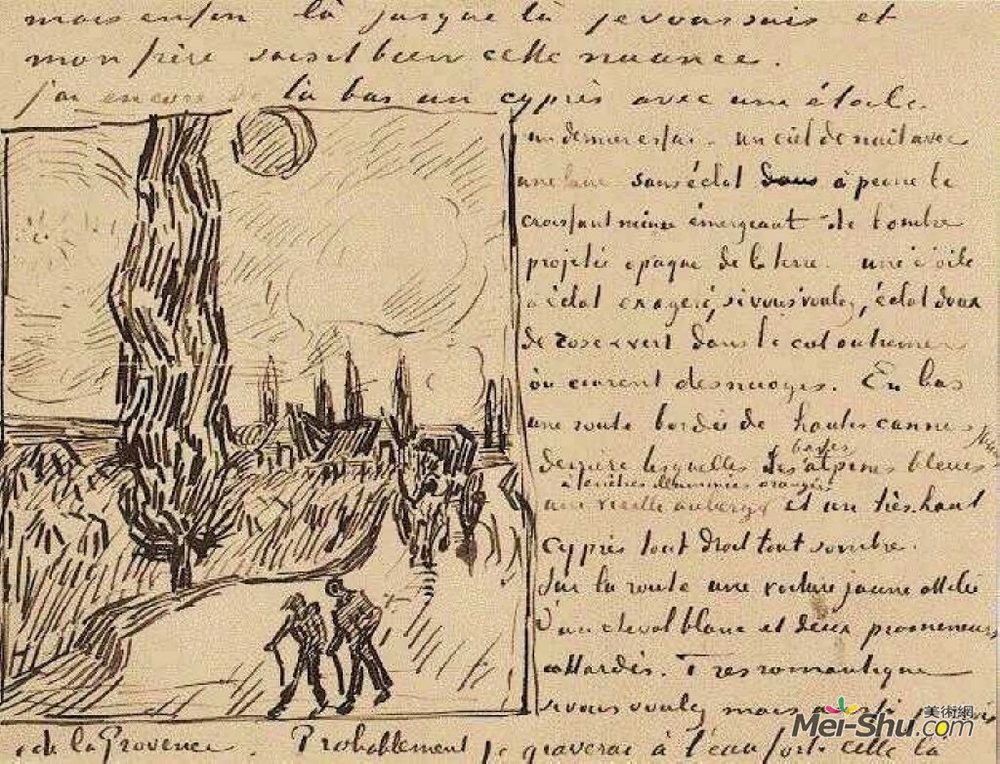 mais enfin là jusque là je vous suis et
mon frère saisit bien cette nuance.
j'ai encore de là bas un cyprès avec une étoile
un dernier essai - un ciel de nuit avec
une lune sans éclat dans à peine le
croissant mince émergeant de l'ombre
projetée opaque de la terre - une étoile
à éclat exageré, si vous voulez, éclat doux
de rose & vert dans le ciel outremer
où courent des nuages. En bas
une route bordée de hautes cannes
derrière lesquelles les basses alpines bleues
à fenêtres illuminées orangées
une vieille auberge et un très haut
cyprès tout droit tout sombre.
Sur la route une voiture jaune attelée
d'un cheval blanc et deux promeneurs
attardés. Très romantique
si vous voulez mais aussi
de la Provence. Probablement je graverai à l'eau forte celle là
美術網
Mei-Shu.com